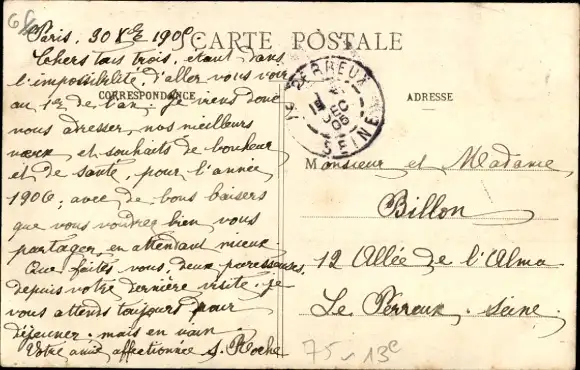 Paris, 30 Xbre 1905
CARTE POSTALE
Chers tous trois, étant dans
l'impossibilité d'aller vous voir
au 1er de l'an. Je viens donc
vous adresser, nos meilleurs
vœux et souhaits de bonheur
et de santé, pour l'année
1906, avec de bons baisers
que vous voudrez bien vous
partager en attendant mieux.
Que faîtes vous, deux paresseuses,
depuis votre dernière visite. je
vous attends toujours pour
déjeuner. mais en vain.
Votre amie affectionnée S. Roche
CORRESPONDANCE
ADRESSE
LE PERREUX
SEINE
Monsieur et Madame
Billon
12 Allée de l'Alma
Le Perreux. Seine.
75 - 13e